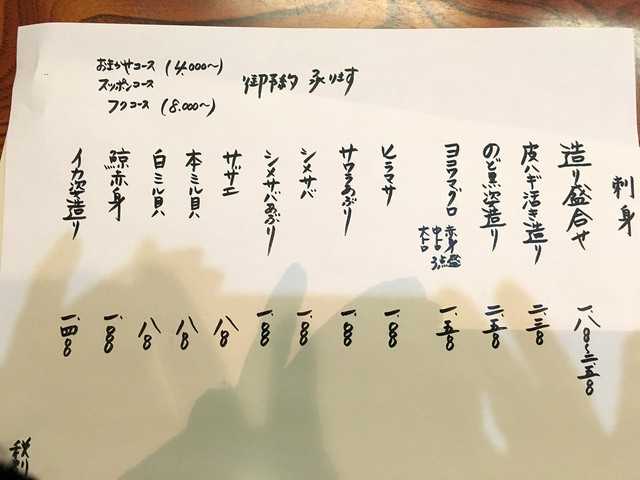 おまかせコース (4.000〜)
スッポンコース
フクコース (8.000〜)
御予約 承ります
刺身
造り盛合せ 一、八〇〜二、五〇
皮ハギ活き造り 二、三〇
のど黒姿造り 二、五〇
ヨコワマグロ 赤身 中トロ 大トロ 3点盛 一、五〇
ヒラマサ 一、〇〇
サワラあぶり 一、〇〇
シメサバ 一、〇〇
シメサバあぶり 一、〇〇
サザエ 八〇
本ミル貝 八〇
白ミル貝 八〇
鯨赤身 一、〇〇
イカ姿造り 一、四〇